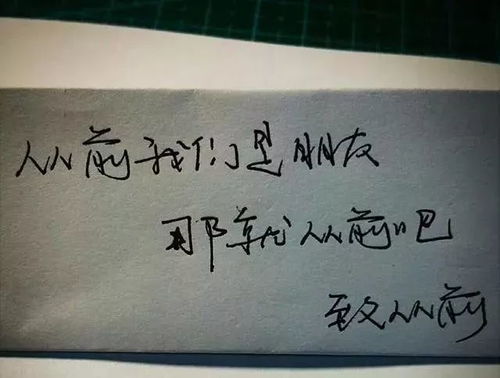 从前我们是朋友
那就从前吧
致从前